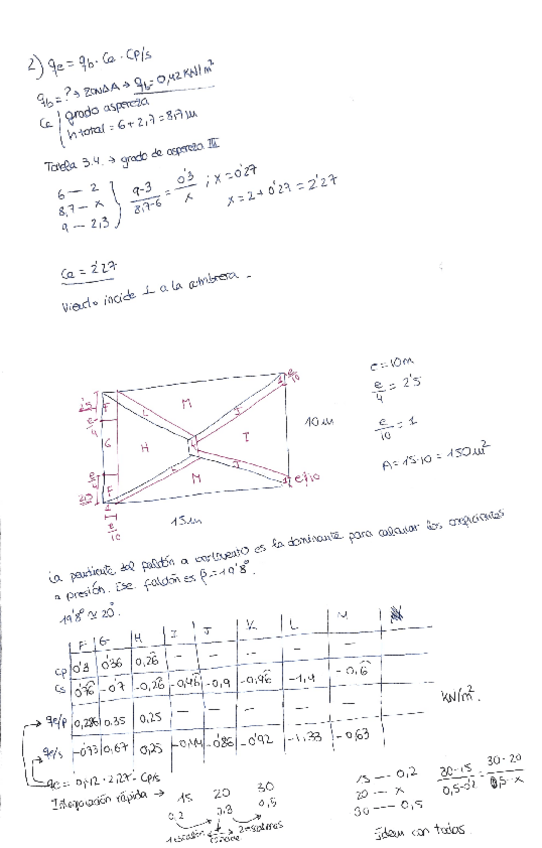 2) qe = qb · Ce · Cp/s
qb = ? → ZONA A → qb = 0,42 KN/m²
Ce grado aspereza
h total = 6 + 2,7 = 8,7 m
Tabla 3.4. → grado de aspereza III
6 — 2
8,7 — x
9 — 2,3
9-3 / 8,7-6 = 0'3 / x ; x = 0'27
x = 2 + 0'27 = 2'27
Ce = 2'27
Viento incide ⊥ a la cumbrera.
e = 10m
e/4 = 2'5
e/10 = 1
A = 15·10 = 150 m²
F e/4 G e/4 F
H L M J I
M J
e/10
e/10
10m
e/10
15m
La pendiente del faldón a barlovento es la dominante para calcular los coeficientes
a presión. Ese faldón es β = 19'8°.
19'8 ≃ 20°.
F G H I J K L M
Cp 0'3 0'36 0,26 — — — — —
Cs 0'76 -0'7 -0,26 -0,46 -0,9 -0,96 -1,4 -0,6
qe/p 0,286 0.35 0,25 — — — — —
qe/s -0'73 0,67 0,25 -0.44 -0'86 -0'92 -1,33 -0,63
KN/m².
qe = 0,42 · 2,27 · Cp/s
Interpolación rápida → 15 20 30
0,2 0,3 0,5
15 --- 0,2
20 --- x
30 --- 0,5
30-15 / 0,5-0'2 = 30-20 / 0,5-x
Idem con todas.